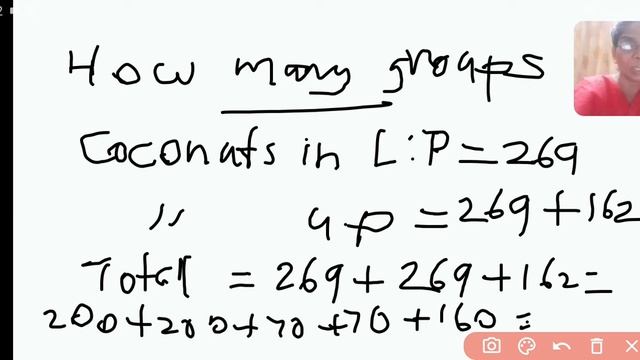 How many groups
Coconats in L:P = 269
" 4p = 269 + 162
Total = 269 + 269 + 162 =
200 + 200 + 70 + 70 + 160 =